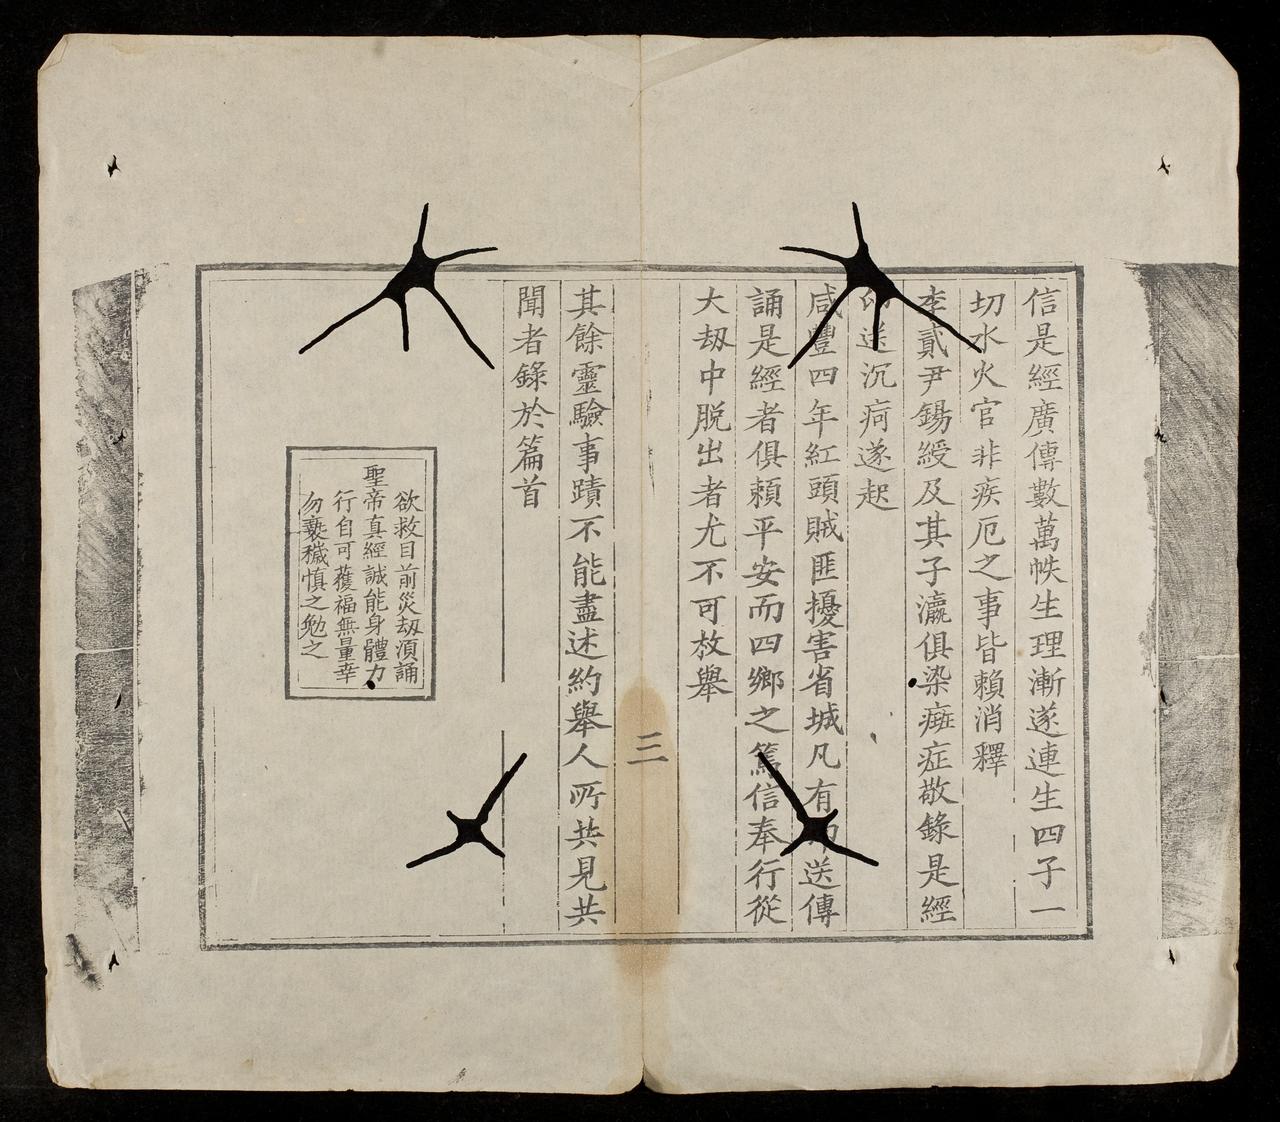 信是經廣傳數萬帙生理漸遂連生四子一
切水火官非疾厄之事皆賴消釋
李貳尹錫綬及其子瀛俱染癍症敬錄是經
送沉疴遂起
咸豐四年紅頭賊匪擾害省城凡有送傳
誦是經者俱賴平安而四鄉之篤信奉行從
大刼中脫出者尤不可枚舉
三
其餘靈驗事蹟不能盡述約舉人所共見共
聞者錄於篇首
欲救目前災刼須誦
聖帝真經誠能身體力
行自可獲福無量幸
勿褻穢慎之勉之